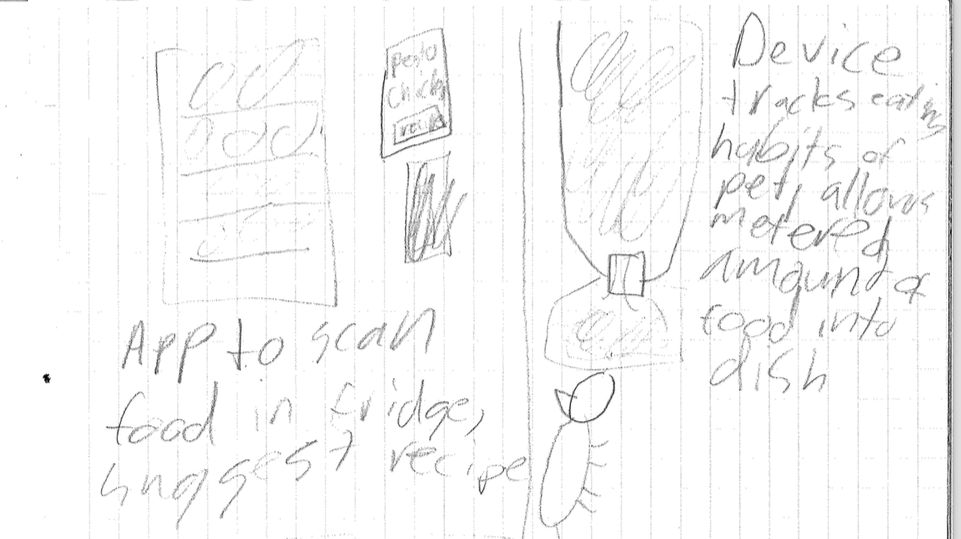 pesto
chicken
recipe
App to scan
food in fridge,
suggest recipe
Device
tracks eating
habits of
pet, allows
metered
amount of
food into
dish